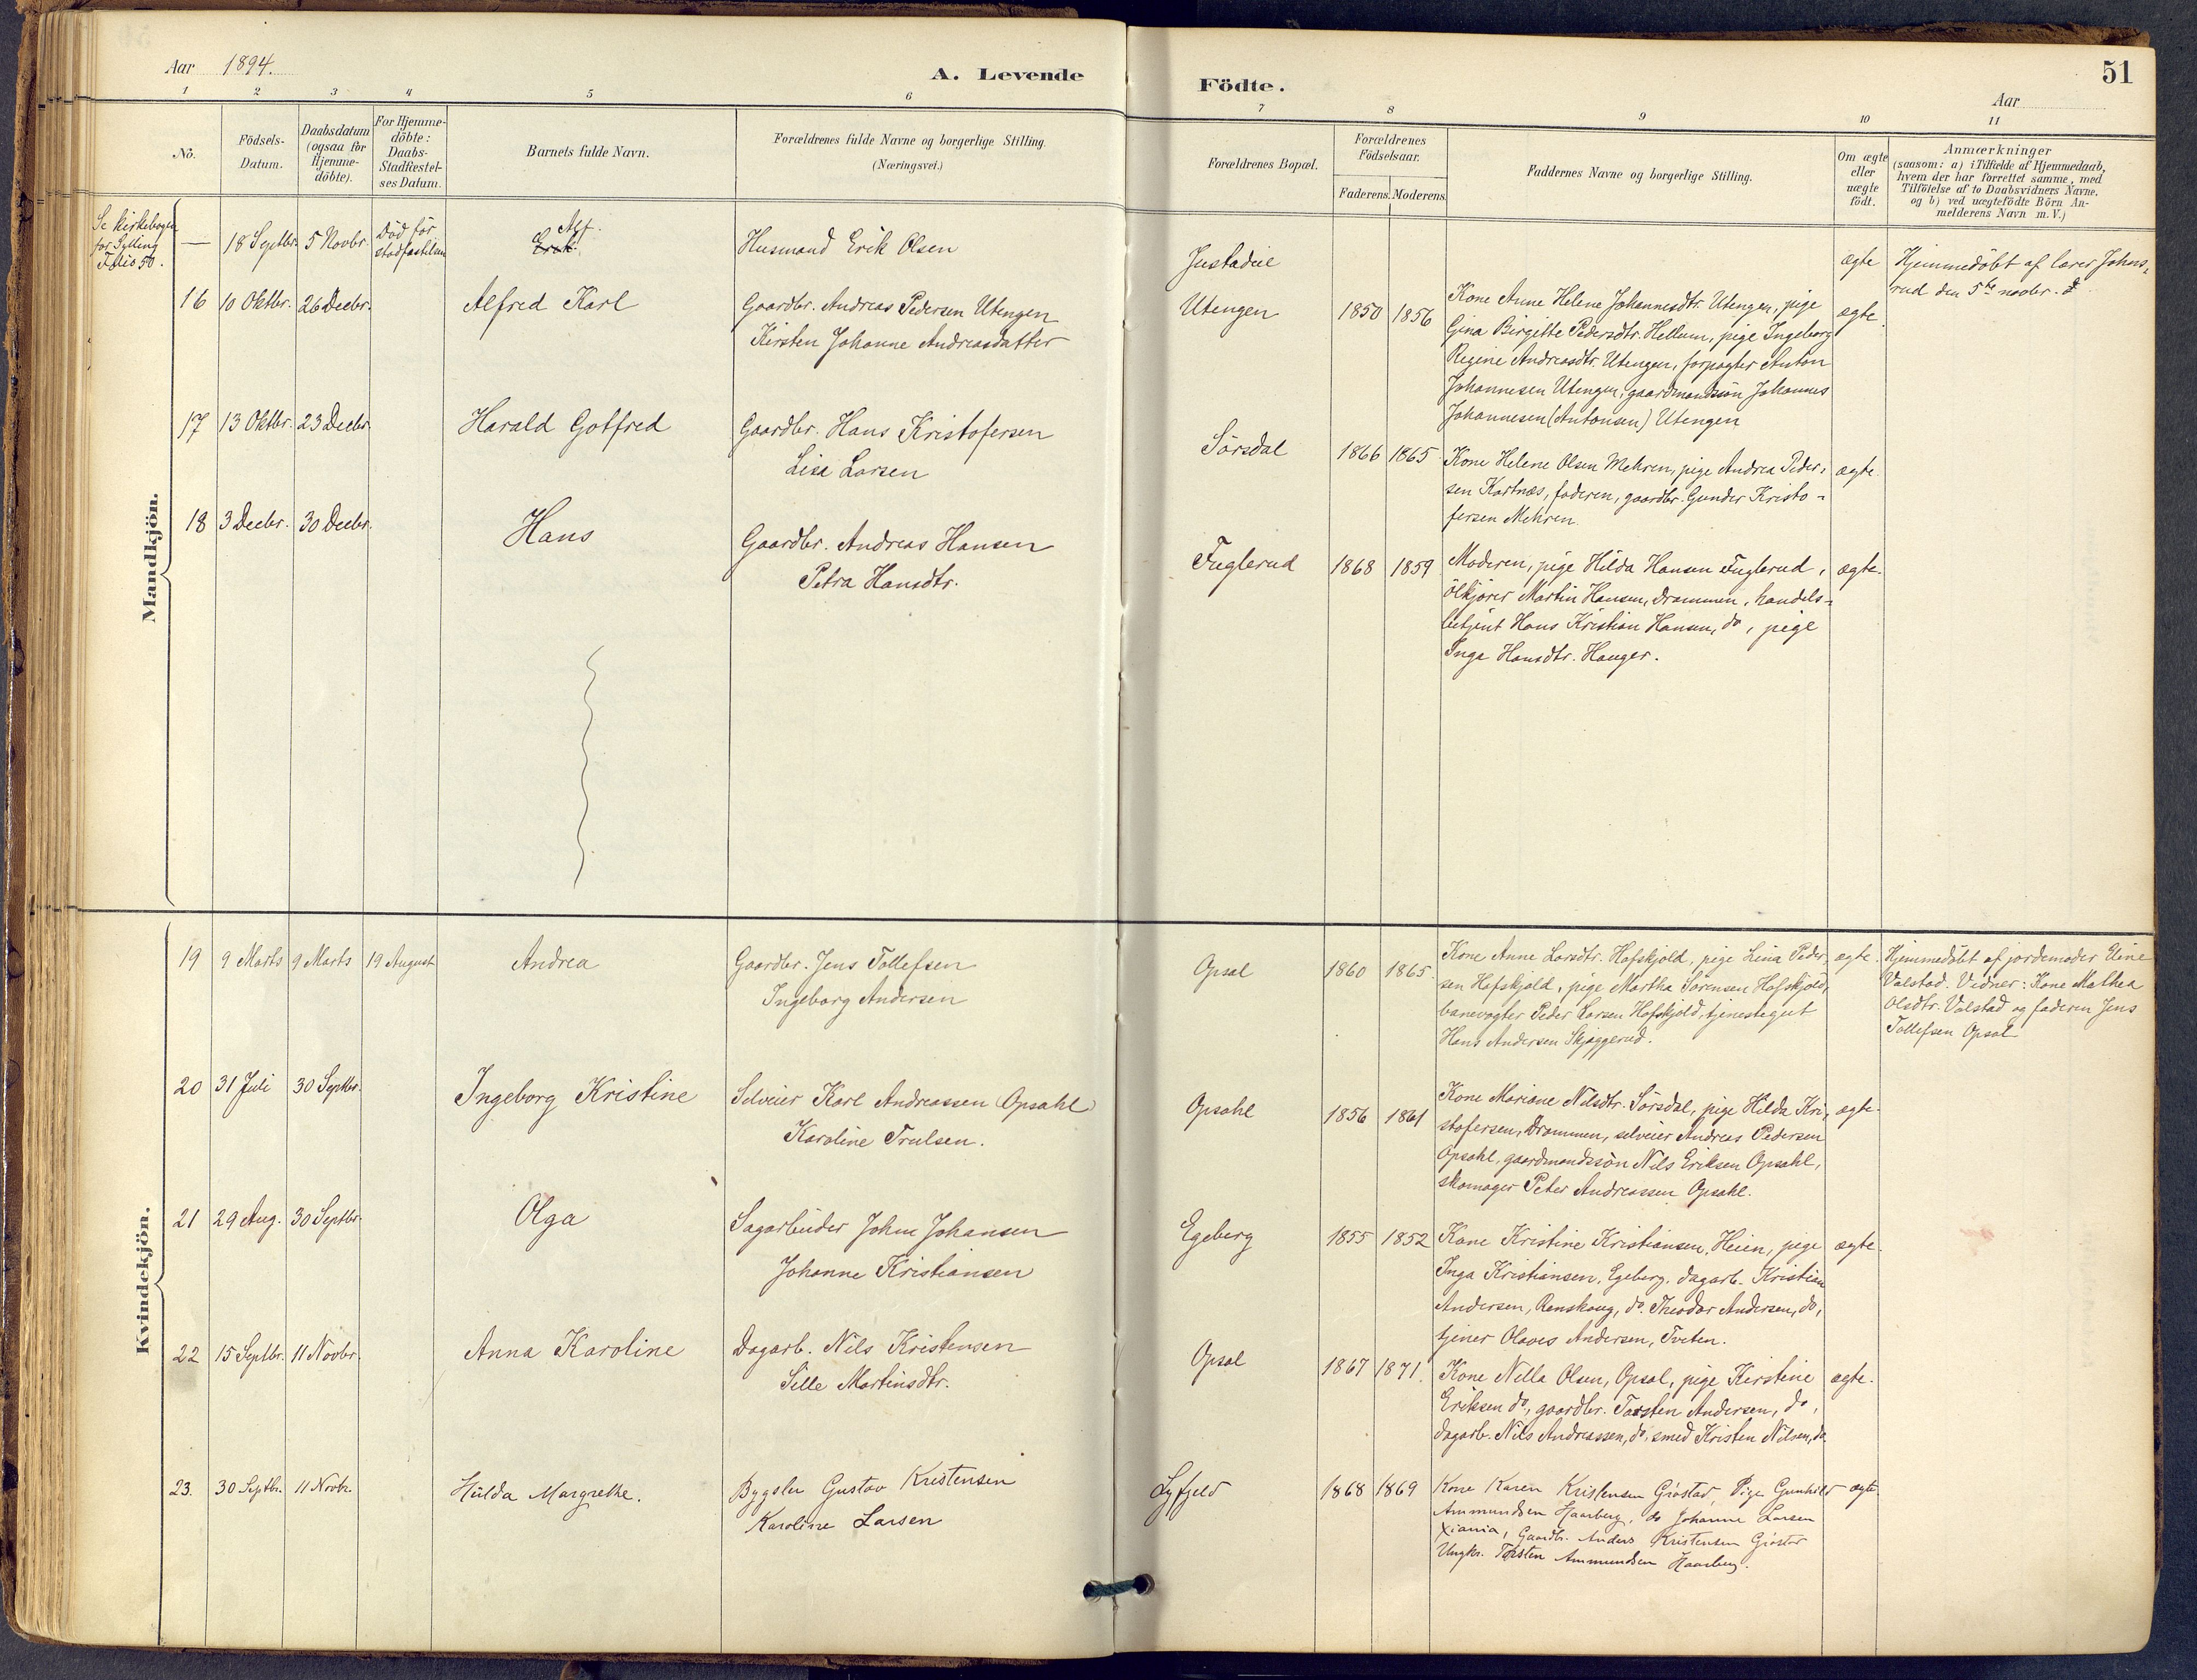 Aar 1894.
A. Levende
Födte.
51
Aar
1 2 3 4 5 6 7 8 9 10 11
No.
Födsels-
Datum.
Daabsdatum
(ogsaa for
Hjemme-
döbte).
For Hjemme-
döbte:
Daabs-
Stadfæstel-
ses Datum.
Barnets fulde Navn.
Forældrenes fulde Navne og borgerlige Stilling.
(Næringsvei.)
Forældrenes Bopæl.
Forældrenes
Födselsaar.
Faderens. Moderens.
Faddernes Navne og borgerlige Stilling.
Om ægte
eller
uægte
födt.
Anmærkninger
(saasom: a) i Tilfælde af Hjemmedaab,
hvem der har forrettet samme, med
Tilföielse af to Daabsvidners Navne.
og b) ved uægtefödte Börn An-
melderens Navn m. V.)
Mandkjön.
Se kirkebogen
for Sylling
Folio 50.
— 18 Septbr. 5 Novbr.
Död för
stadfæstelsen
Alf.
Erik.
Husmand Erik Olsen
ægte
Hjemmedöbt af lærer Johns-
rud den 5te novbr.
16 10 Oktbr. 26 Decbr.
Alfred Karl
Gaardbr. Andreas Pedersen Utengen
Kirsten Johanne Andreasdatter
Utengen 1850 1856
Kone Anne Helene Johannesdtr. Utengen, pige
Gina Birgitte Pedersdtr. Hellum, pige Ingeborg
Regine Andreasdtr. Utengen, forpagter Anton
Johannesen Utengen, gaardmandssön Johannes
Johannesen (Antonsen) Utengen
ægte.
17 13 Oktbr. 23 Decbr.
Harald Gotfred
Gaardbr. Hans Kristofersen
Lise Larsen
Sörsdal 1866 1865
Kone Helene Olsen Mehren, pige Andrea Peder-
sen Kortnæs, faderen, gaardbr. Gunder Kristo-
fersen Mehren.
ægte.
18 3 Decbr. 30 Decbr.
Hans
Gaardbr. Andreas Hansen
Petra Hansdtr.
Fuglerud 1868 1859
Moderen, pige Hilda Hansen Fuglerud,
ölkjörer Martin Hansen, Drammen, handels-
betjent Hans Kristian Hansen, do, pige
Inga Hansdtr. Hauger.
ægte.
Kvindekjön.
19 9 Marts 9 Marts 19 August
Andrea
Gaardbr. Jens Tollefsen
Ingeborg Andersen
Opsal 1860 1865.
Kone Anne Larsdtr. Hofskjold, pige Lina Peder-
sen Hofskjold, pige Martha Sörensen Hofskjold,
banevogter Peder Larsen Hofskjold, tjenestegut
Hans Andersen Skjæggerud.
ægte.
Hjemmedöbt af jordemoder Eline
Valstad. Vidner: Kone Mathea
Olsdtr. Valstad og faderen Jens
Tollefsen Opsal
20 31 Juli 30 Septbr.
Ingeborg Kristine
Selveier Karl Andreassen Opsahl
Karoline Trulsen.
Opsahl 1856 1861
Kone Mariane Nilsdtr. Sörsdal, pige Hilda Kri-
stofersen, Drammen, selveier Andreas Pedersen
Opsahl, gaardmandssön Nils Eriksen Opsahl,
skomager Peter Andreassen Opsahl.
ægte.
21 29 Aug. 30 Septbr.
Olga
Sagarbeider John Johansen
Johanne Kristiansen
Egeberg 1855 1852
Kone Kristine Kristiansen, Heien, pige
Inga Kristiansen, Egeberg, dagarb. Kristian
Andersen, Renskoug, do. Theodor Andersen, do,
tjener Olaves Andersen, Tveten.
ægte.
22 15 Septbr. 11 Novbr.
Anna Karoline
Dagarb. Nils Kristensen
Sille Martinsdtr.
Opsal 1867 1871.
Kone Nilla Olsen, Opsal, pige Kirstine
Eriksen do, gaardbr. Torsten Andersen, do,
dagarb. Nils Andreassen, do, smed Kristen Nilsen, do.
ægte.
23. 30 Septbr. 11 Novbr.
Hulda Margrethe.
Bygsler Gustav Kristensen
Karoline Larsen
Lyfjeld 1868 1869
Kone Karen Kristensen Gröstad, Pige Gunhild
Ammundsen Haarberg, do Johanne Larsen
Xiania, Gaardb. Anders Kristensen Gröstad
Ungk. Torsten Ammundsen Haarberg.
ægte.